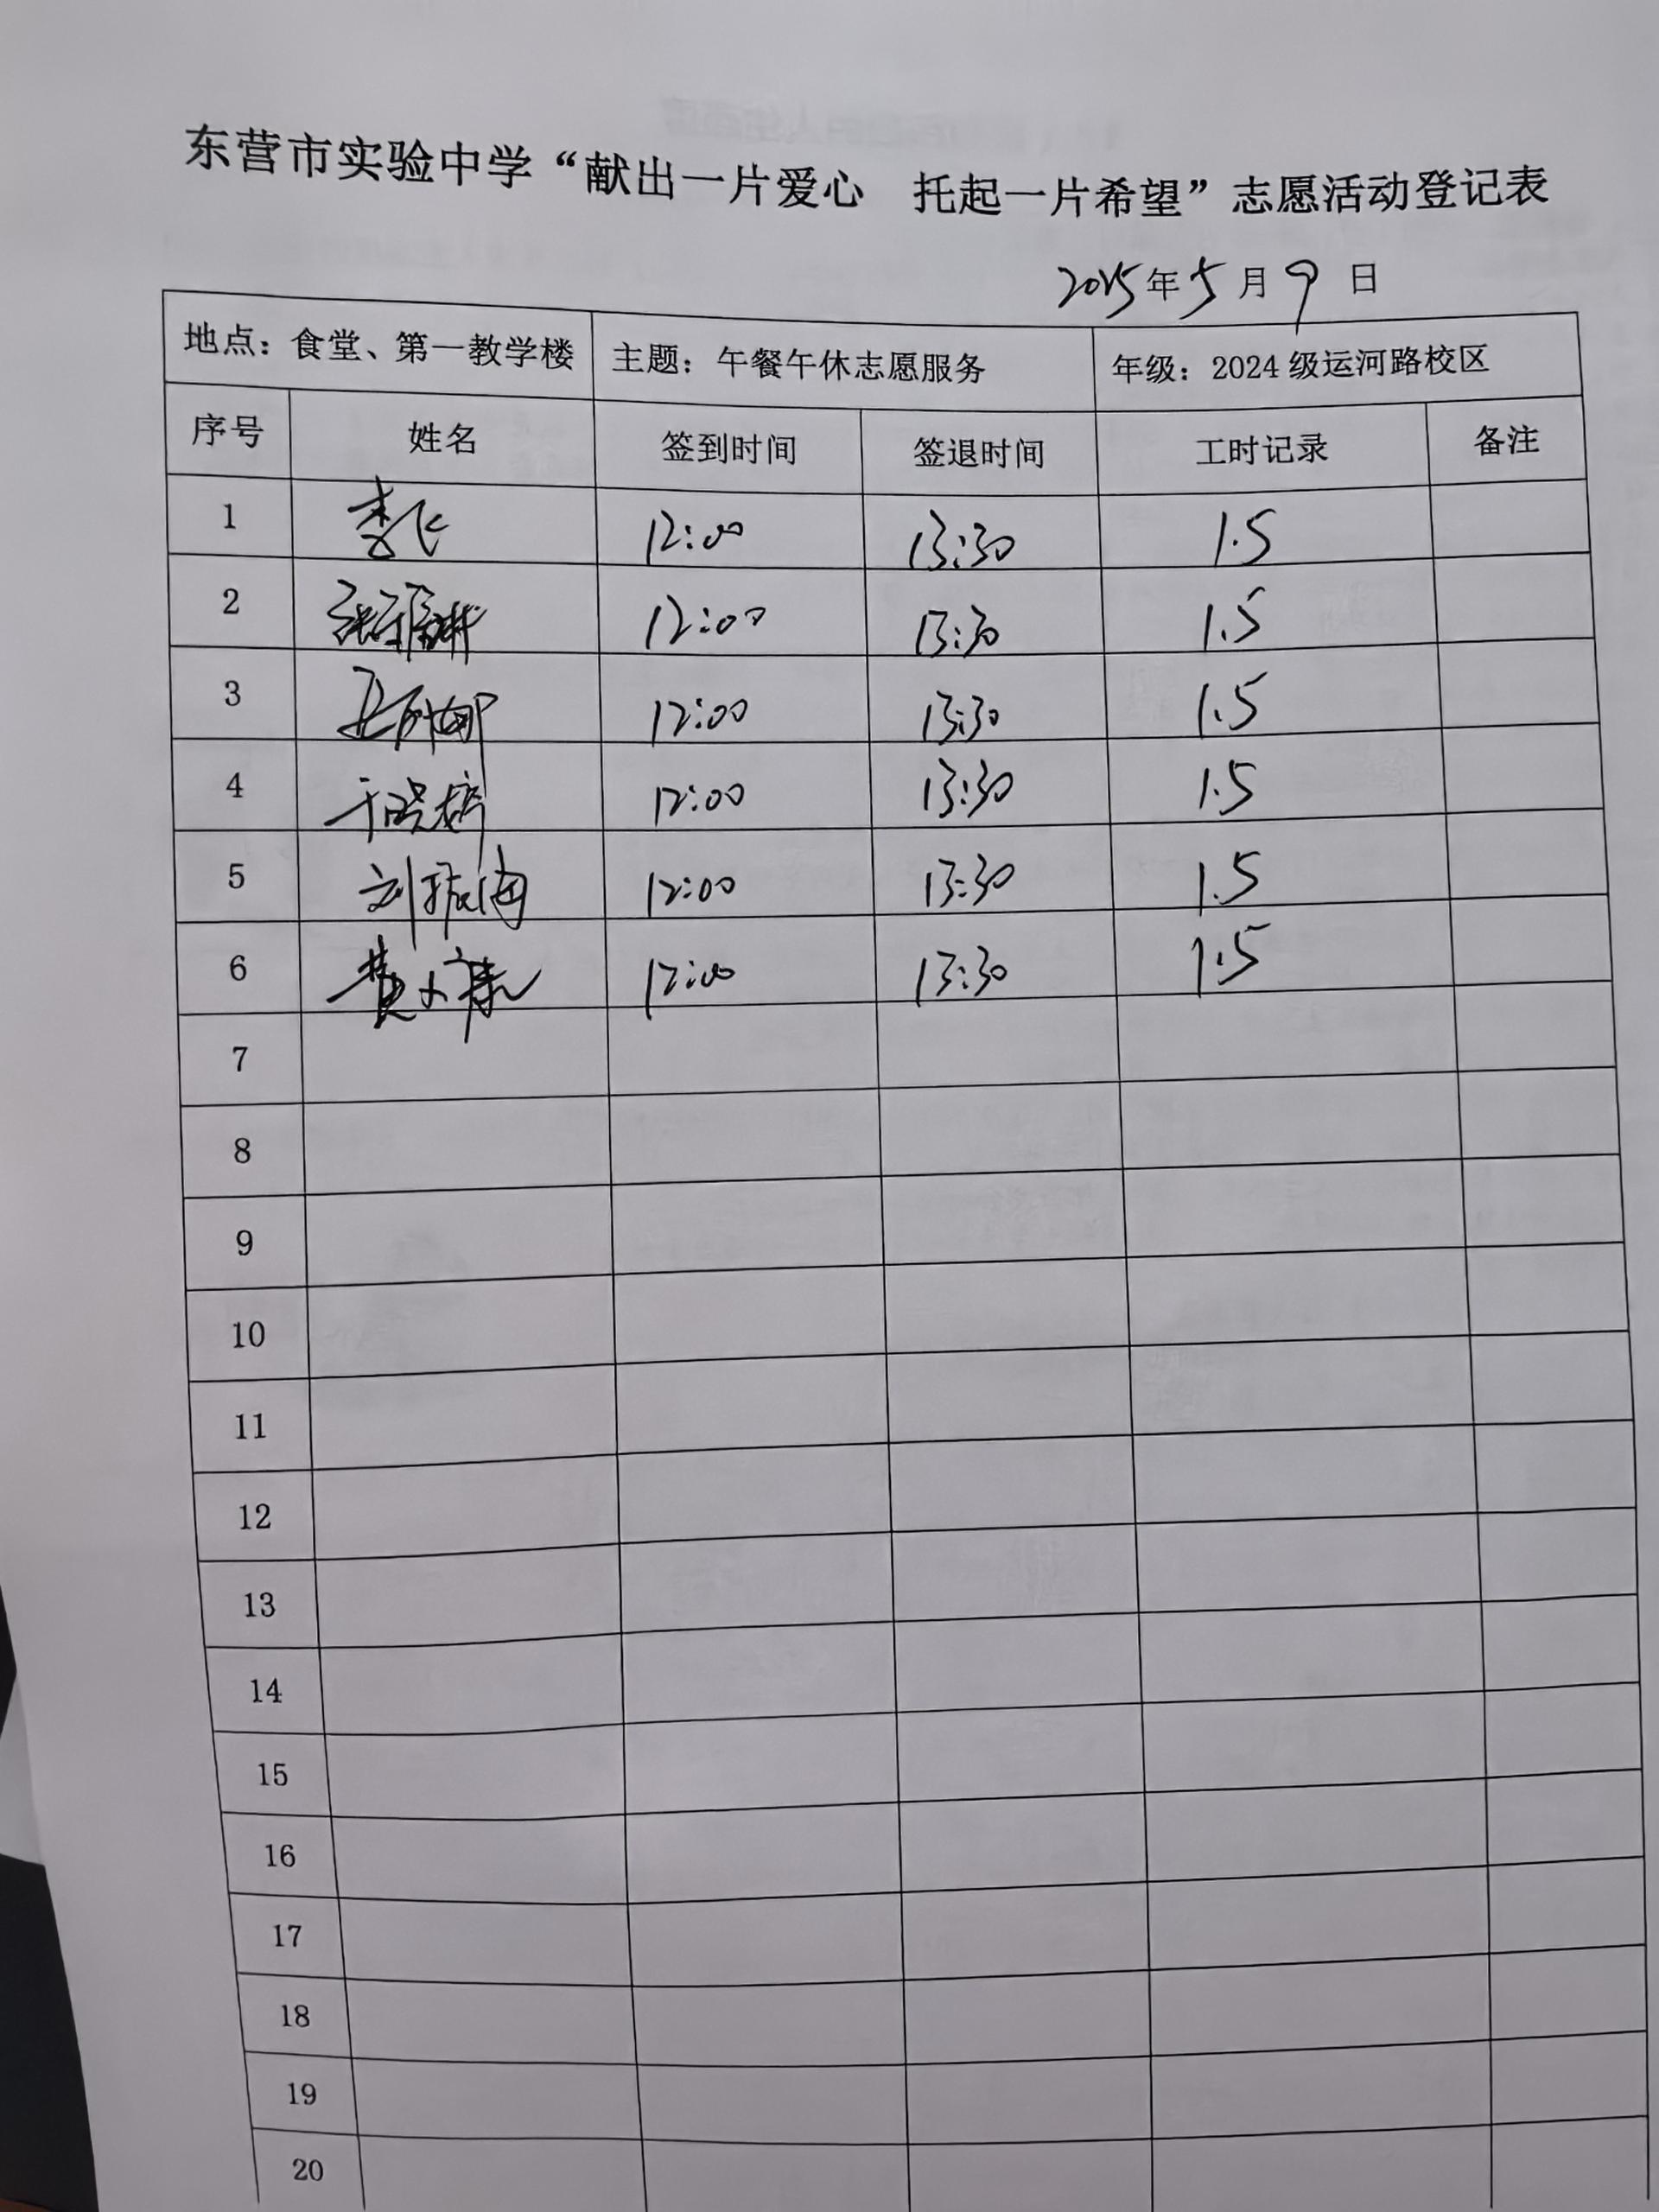 东营市实验中学“献出一片爱心 托起一片希望”志愿活动登记表
2025年5月9日
地点：食堂、第一教学楼 主题：午餐午休志愿服务 年级：2024级运河路校区
序号 姓名 签到时间 签退时间 工时记录 备注
1 李飞 12:00 13:30 1.5
2 12:00 13:30 1.5
3 12:00 13:30 1.5
4 于晓婷 12:00 13:30 1.5
5 刘振海 12:00 13:30 1.5
6 12:00 13:30 1.5
7
8
9
10
11
12
13
14
15
16
17
18
19
20